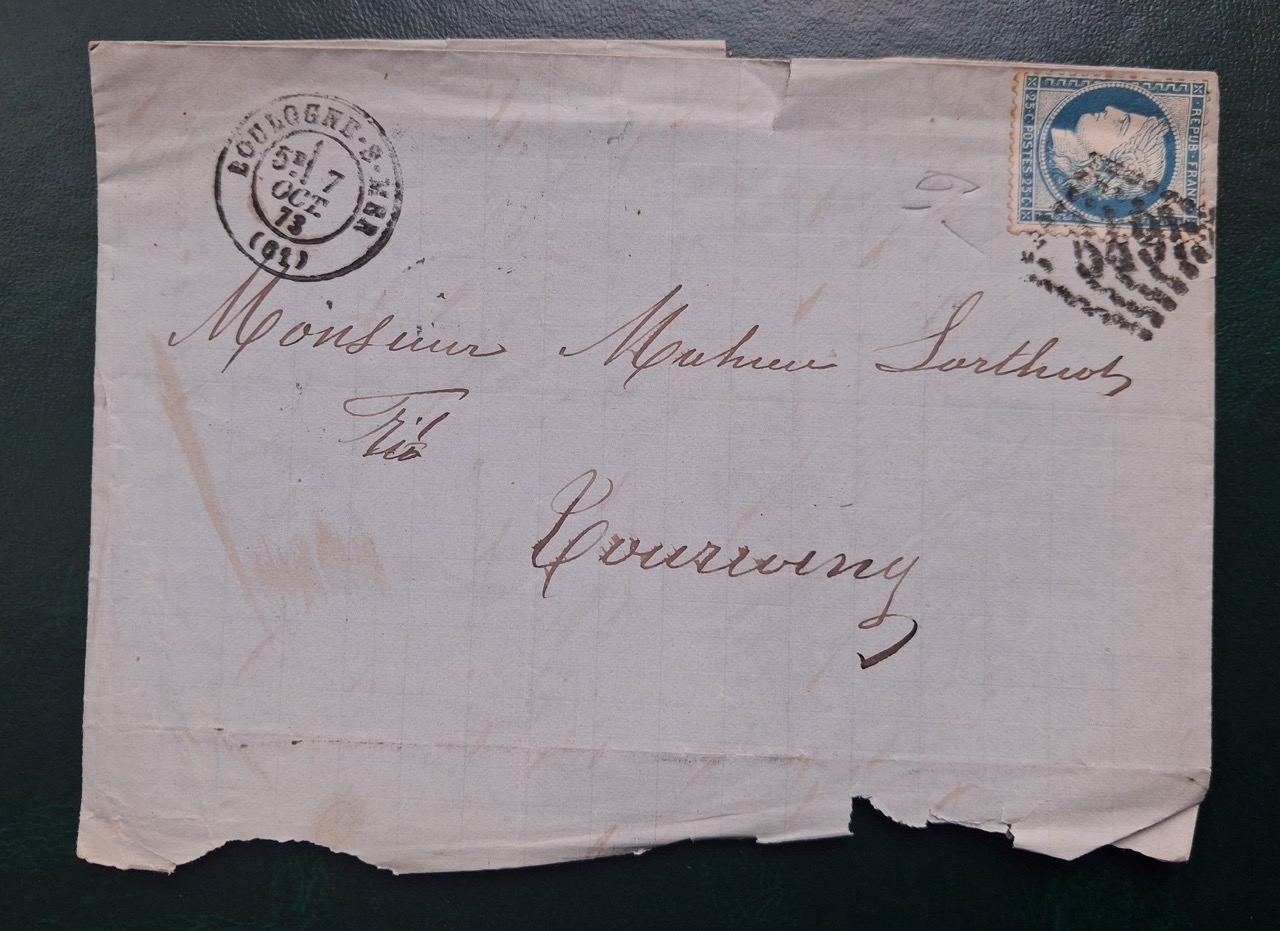 BOULOGNE-S-MER
5E/ 7
OCT.
73
(61)
REPUB · FRANC
25 C POSTES 25 C
Monsieur Mathieu Lorthiois
Fils
Tourcoing